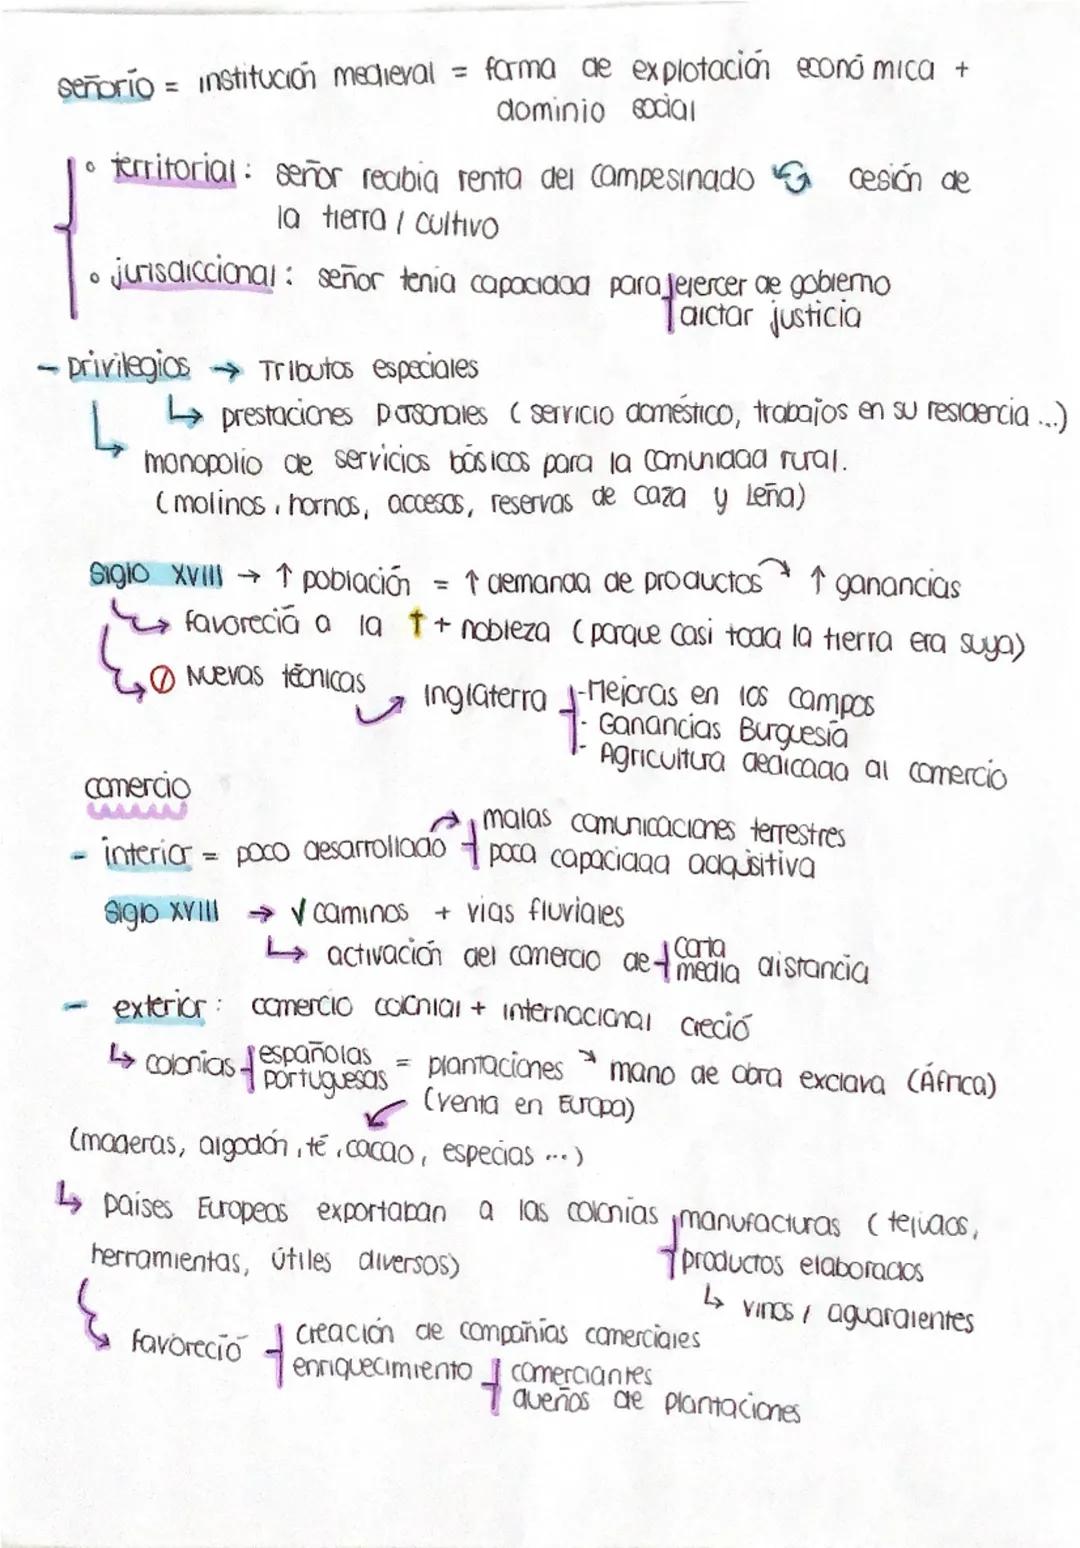 señorío = institución medieval = forma de explotación económica +
dominio social
° territorial: señor recibia renta del campesinado cesión de
la tierra / cultivo
° jurisdiccional: señor tenia capacidad para ejercer de gobierno
dictar justicia
- privilegios → Tributos especiales
↳ prestaciones personales (servicio doméstico, trabajos en su residencia...)
↳ monopolio de servicios básicos para la comunidad rural.
(molinos, hornos, accesos, reservas de caza y leña)
Siglo XVIII → ↑ población = ↑ demanda de productos ↑ ganancias
↳ favoreciá a la † + nobleza (porque casi toda la tierra era suya)
Nuevas técnicas Inglaterra - Mejoras en los campos
- Ganancias Burguesía
- Agricultura dedicada al comercio
comercio
- interior = poco desarrollado malas comunicaciones terrestres
poca capacidad adquisitiva
Siglo XVIII → √ caminos + vias fluviales
↳ activación del comercio de corta
media distancia
- exterior: comercio colonial + internacional creció
↳ colonias españolas = plantaciones → mano de obra exclava (África)
portuguesas (venta en Europa)
(maderas, algodón, té, cacao, especias ...)
↳ países Europeos exportaban a las colonias manufacturas (tejidos,
herramientas, útiles diversos) productos elaborados
↳ vinos / aguardientes
favoreció creación de compañías comerciales
enriquecimiento comerciantes
dueños de plantaciones